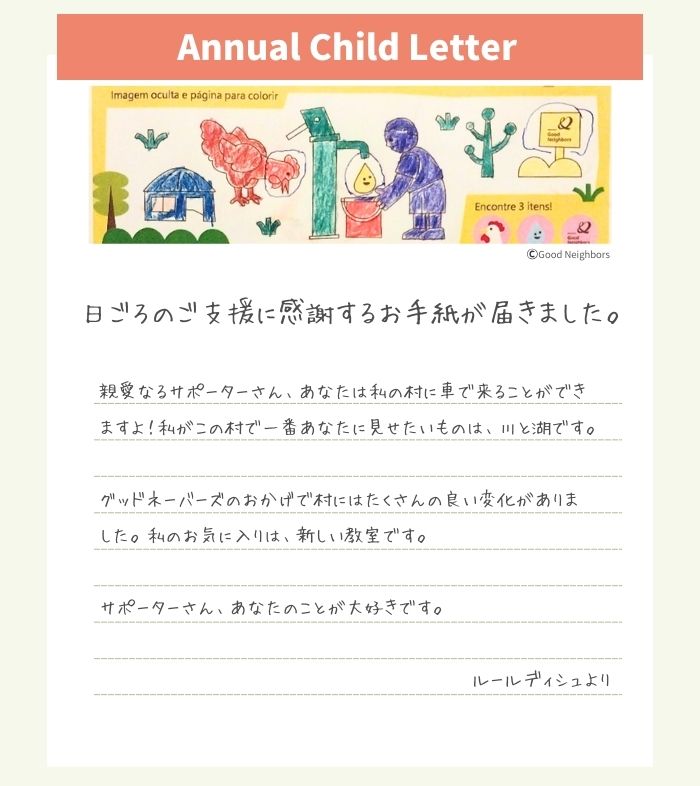 Annual Child Letter
Imagem oculta e página para colorir
Good
Neighbors
Encontre 3 itens!
Good
Neighbors
©Good Neighbors
日ごろのご支援に感謝するお手紙が届きました。
親愛なるサポーターさん、あなたは私の村に車で来ることができ
ますよ！私がこの村で一番あなたに見せたいものは、川と湖です。
グッドネーバーズのおかげで村にはたくさんの良い変化がありま
した。私のお気に入りは、新しい教室です。
サポーターさん、あなたのことが大好きです。
ルールディシュより